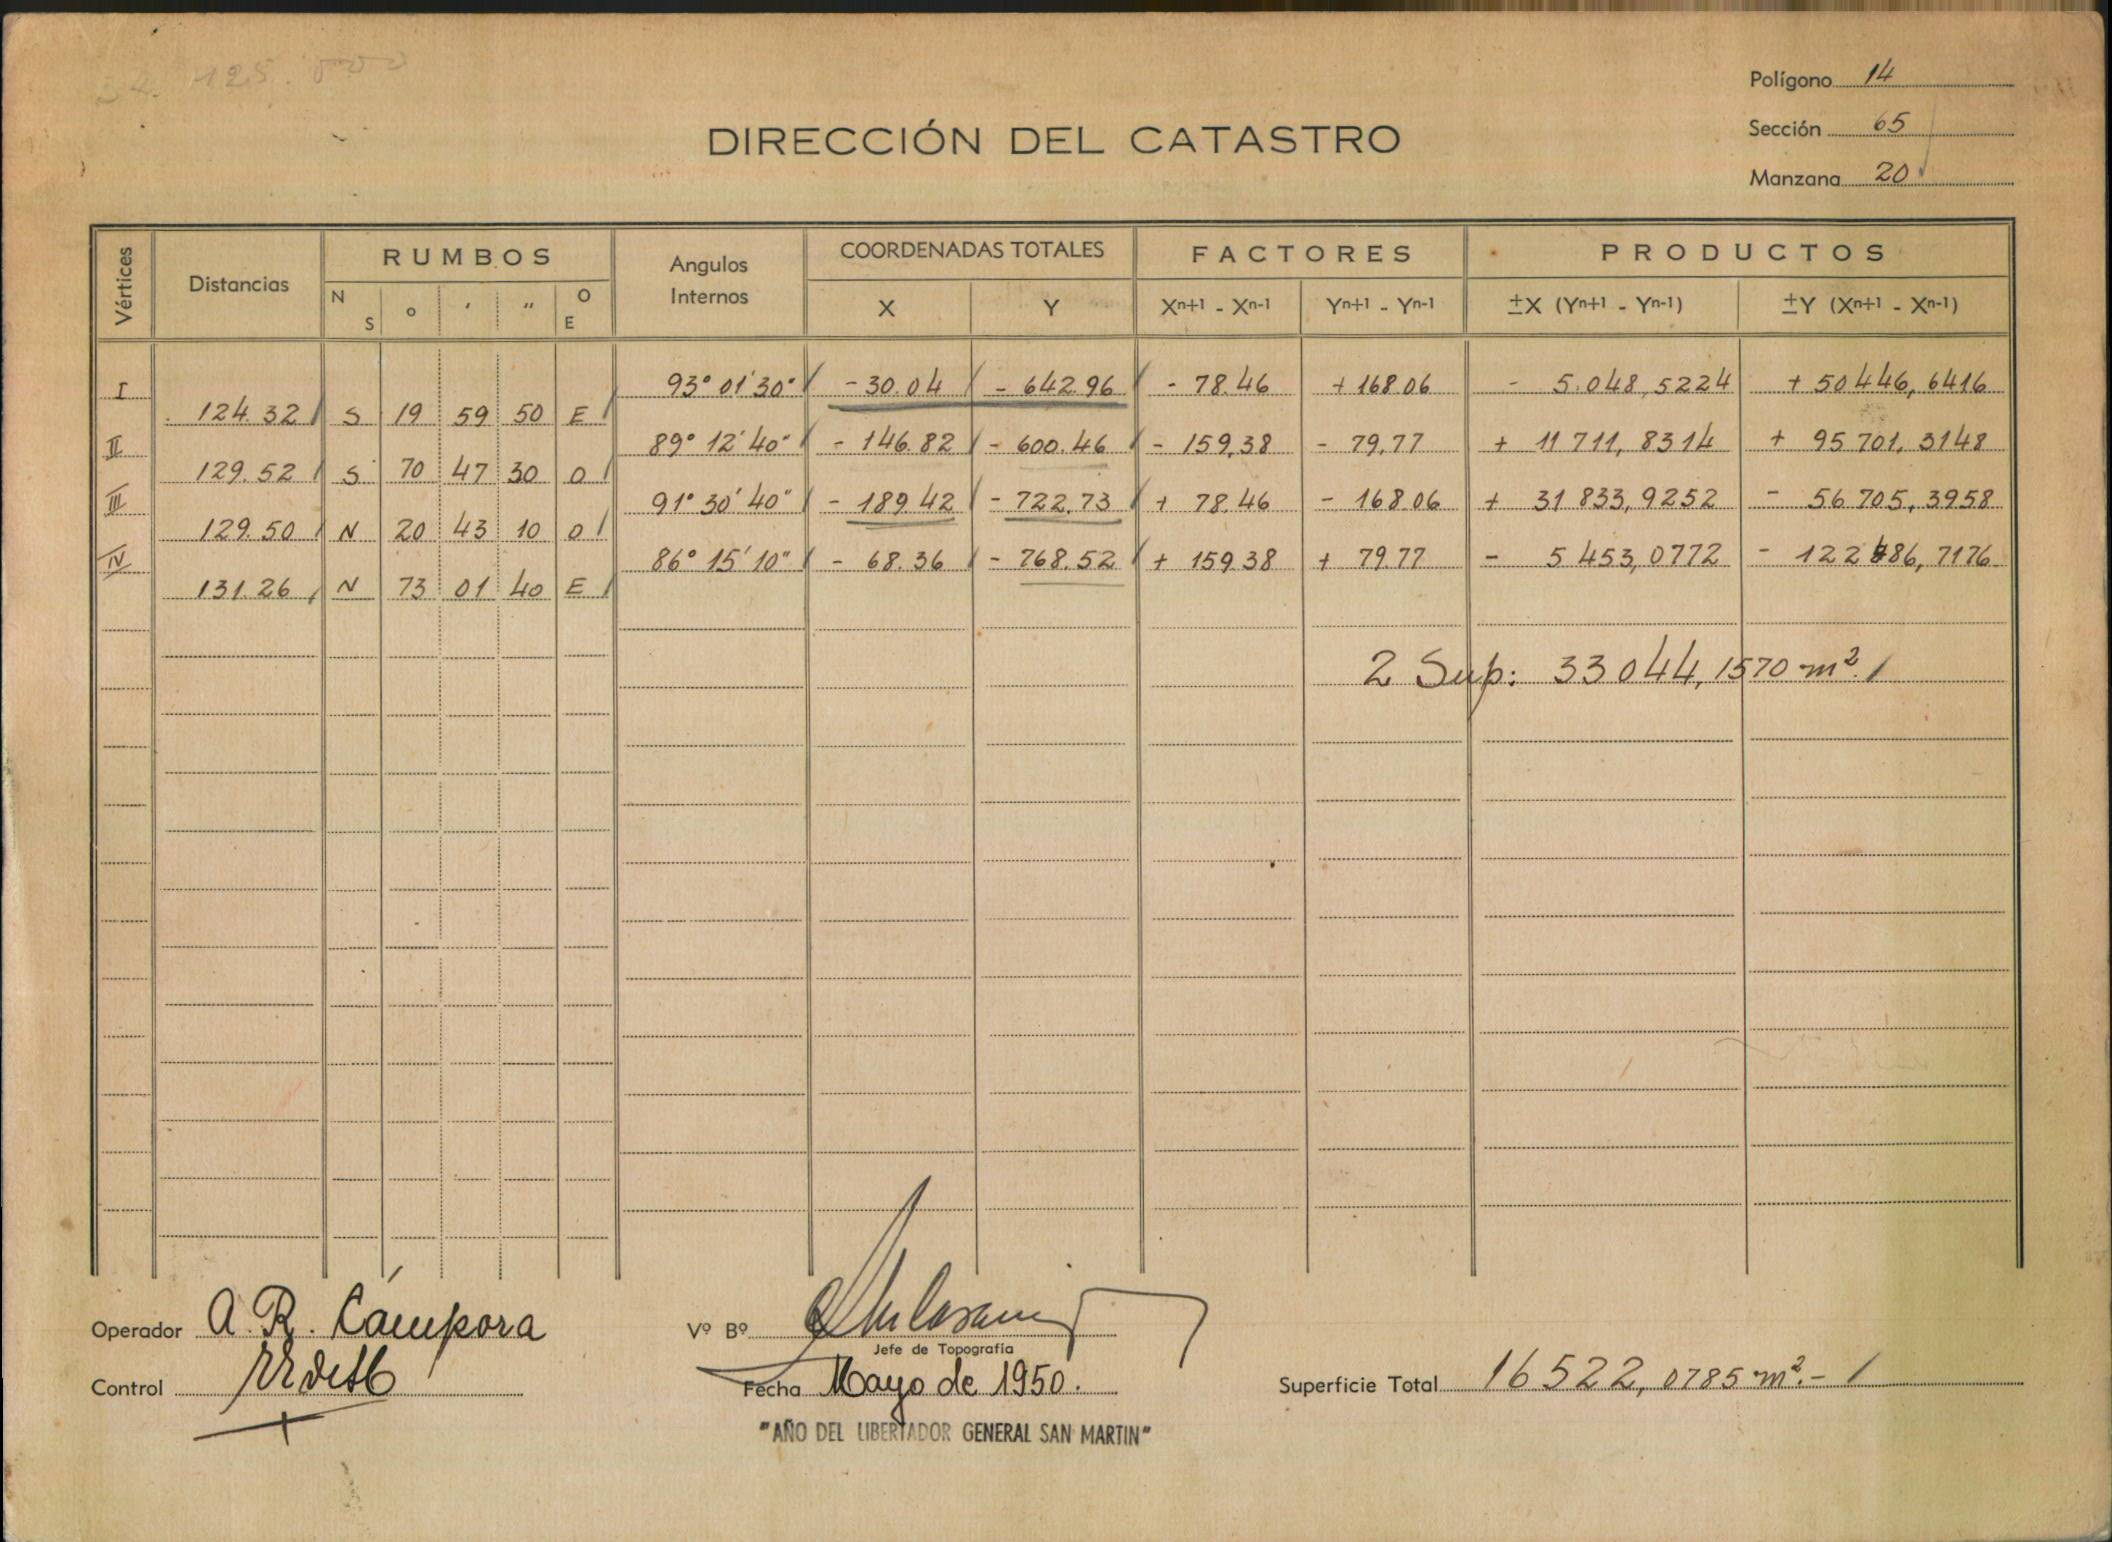 Polígono 14
DIRECCIÓN DEL CATASTRO
Sección 65
Manzana 20
Vértices Distancias RUMBOS Angulos Internos COORDENADAS TOTALES FACTORES PRODUCTOS
N S ° ' " O E X Y Xn+1 - Xn-1 Yn+1 - Yn-1 ±X (Yn+1 - Yn-1) ±Y (Xn+1 - Xn-1)
I 93° 01' 30" - 30.04 - 642.96 - 78.46 + 168.06 - 5.048,5224 + 50446,6416
124.32 S 19 59 50 E
II 89° 12' 40" - 146.82 - 600.46 - 159,38 - 79,77 + 11 711,8314 + 95 701,3148
129.52 S 70 47 30 O
III 91° 30' 40" - 189.42 - 722.73 + 78.46 - 168.06 + 31 833,9252 - 56 705,3958
129.50 N 20 43 10 O
IV 86° 15' 10" - 68.36 - 768.52 + 159.38 + 79.77 - 5 453,0772 - 122 486,7176
131.26 N 73 01 40 E
2 Sup: 33 044,1570 m².
Operador A. R. Cámpora Vº Bº
Jefe de Topografía
Control Fecha Mayo de 1950. Superficie Total 16522,0785 m².-
"AÑO DEL LIBERTADOR GENERAL SAN MARTIN"